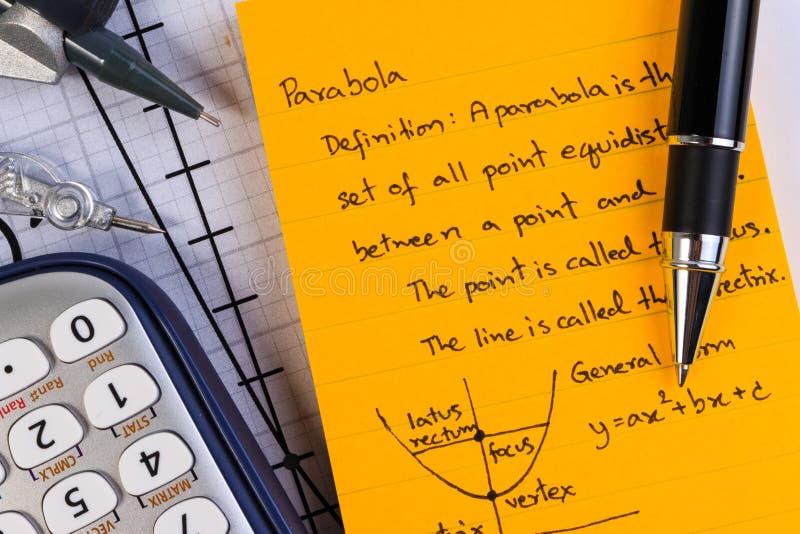 Parabola
Definition: A parabola is th
set of all point equidist
between a point and
The point is called t us.
The line is called th rectrix.
General rm
y=ax²+bx+c
latus
rectum
focus
vertex
trix
0
Rnd
Ran#
1
STAT
2
CMPLX
4
MATRIX
5
VEC
7
dreamstime